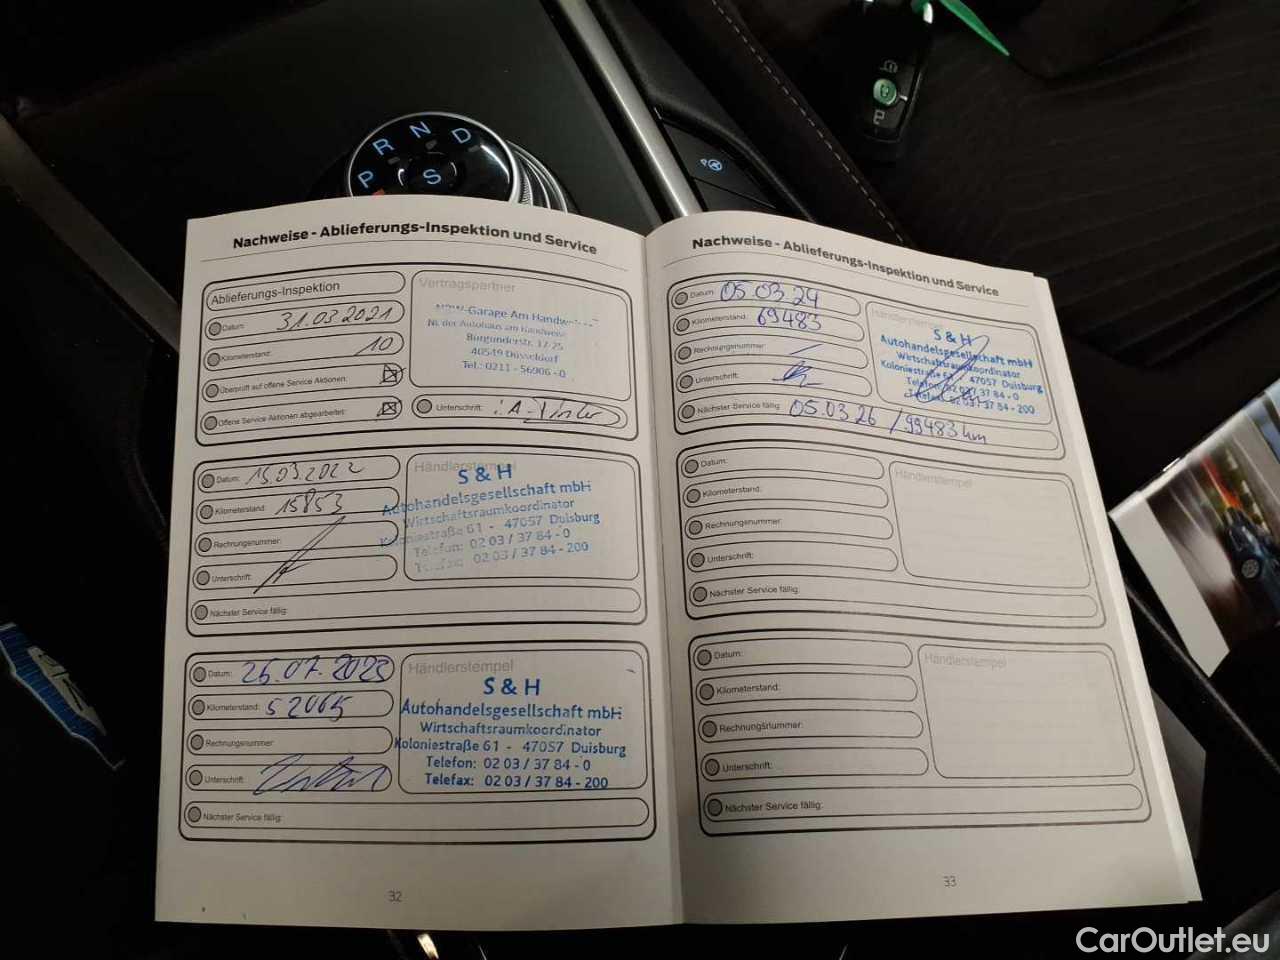 R N D
P S
P
Nachweise - Ablieferungs-Inspektion und Service
Ablieferungs-Inspektion
Vertragspartner
Datum: 31.03.2021
Kilometerstand: 10
Überprüft auf offene Service Aktionen:
Offene Service Aktionen abgearbeitet:
NRW-Garage Am Handweiser
NL der Autohaus am Handweiser
Burgunderstr. 17-25
40549 Düsseldorf
Tel.: 0211 - 56906 - 0
Unterschrift: i.A.
Datum: 15.03.2022
Kilometerstand: 15853
Rechnungsnummer:
Unterschrift:
Nächster Service fällig:
Händlerstempel
S & H
Autohandelsgesellschaft mbH
Wirtschaftsraumkoordinator
Koloniestraße 61 - 47057 Duisburg
Telefon: 02 03 / 37 84 - 0
Telefax: 02 03 / 37 84 - 200
Datum: 25.07.2023
Kilometerstand: 52065
Rechnungsnummer:
Unterschrift:
Nächster Service fällig:
Händlerstempel
S & H
Autohandelsgesellschaft mbH
Wirtschaftsraumkoordinator
Koloniestraße 61 - 47057 Duisburg
Telefon: 02 03 / 37 84 - 0
Telefax: 02 03 / 37 84 - 200
32
Nachweise - Ablieferungs-Inspektion und Service
Datum: 05.03.24
Kilometerstand: 69483
Rechnungsnummer:
Unterschrift:
Nächster Service fällig: 05.03.26 / 99483 km
Händlerstempel
S & H
Autohandelsgesellschaft mbH
Wirtschaftsraumkoordinator
Koloniestraße 61 - 47057 Duisburg
Telefon: 02 03 / 37 84 - 0
Telefax: 02 03 / 37 84 - 200
Datum:
Kilometerstand:
Rechnungsnummer:
Unterschrift:
Nächster Service fällig:
Händlerstempel
Datum:
Kilometerstand:
Rechnungsnummer:
Unterschrift:
Nächster Service fällig:
Händlerstempel
33
CarOutlet.eu